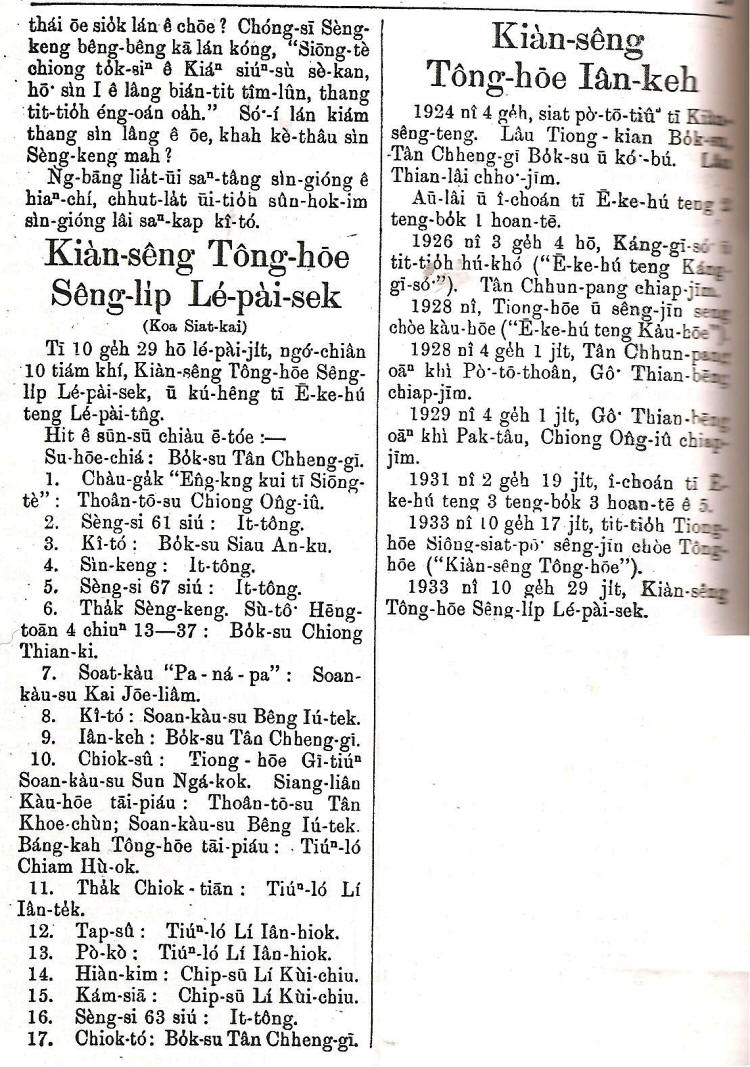 thái ōe sio̍k lán ê chōe? Chóng-sī Sèng-
keng bêng-bêng kā lán kóng, “Siōng-tè
chiong to̍k-siⁿ ê Kiáⁿ siúⁿ-sù sè-kan,
hō͘ sìn I ê lâng bián-tit tîm-lûn, thang
tit-tio̍h éng-oán oa̍h.” Só͘-í lán kiám
thang sìn lâng ê ōe, khah kè-thâu sìn
Sèng-keng mah?
Ǹg-bāng lia̍t-ūi saⁿ-tâng sìn-gióng ê
hiaⁿ-chí, chhut-la̍t ūi-tio̍h sûn-hok-im
sìn-gióng lâi saⁿ-kap kî-tó.
Kiàn-sêng Tông-hōe
Sêng-li̍p Lé-pài-sek
(Koa Siat-kai)
Tī 10 ge̍h 29 hō lé-pài-ji̍t, ngó͘-chiân
10 tiám khí, Kiàn-sêng Tông-hōe Sêng-
li̍p Lé-pài-sek, ū kú-hêng tī Ē-ke-hú
teng Lé-pài-tn̂g.
Hit ê sūn-sū chiàu ē-tóe:—
Su-hōe-chiá: Bo̍k-su Tân Chheng-gī.
1. Chàu-ga̍k “Eng̍-kng kui tī Siōng-
tè”: Thoân-tō-su Chiong Ong̍-iû.
2. Sèng-si 61 siú: It-tông.
3. Kî-tó: Bo̍k-su Siau An-ku.
4. Sìn-keng: It-tông.
5. Sèng-si 67 siú: It-tông.
6. Tha̍k Sèng-keng. Sù-tô͘ Hēng-
toān 4 chiuⁿ 13—37: Bo̍k-su Chiong
Thian-ki.
7. Soat-kàu “Pa-ná-pa”: Soan-
kàu-su Kai Jōe-liâm.
8. Kî-tó: Soan-kàu-su Bêng Iú-tek.
9. Iân-keh: Bo̍k-su Tân Chheng-gī.
10. Chiok-sû: Tiong-hōe Gī-tiúⁿ
Soan-kàu-su Sun Ngá-kok. Siang-liân
Kàu-hōe tāi-piáu: Thoân-tō-su Tân
Khoe-chùn; Soan-kàu-su Bêng Iú-tek.
Báng-kah Tông-hōe tāi-piáu: Tiúⁿ-ló
Chiam Hù-ok.
11. Tha̍k Chiok-tiān: Tiúⁿ-ló Lí
Iân-te̍k.
12. Tap-sû: Tiúⁿ-ló Lí Iân-hiok.
13. Pò-kò: Tiúⁿ-ló Lí Iân-hiok.
14. Hiàn-kim: Chip-sū Lí Kùi-chiu.
15. Kám-siā: Chip-sū Lí Kùi-chiu.
16. Sèng-si 63 siú: It-tông.
17. Chiok-tó: Bo̍k-su Tân Chheng-gī.
Kiàn-sêng
Tông-hōe Iân-keh
1924 nî 4 ge̍h, siat pò͘-tō-tiûⁿ tī Kiàn-
sêng-teng. Lâu Tiong-kian Bo̍k-su,
Tân Chheng-gī Bo̍k-su ū kó͘-bú.
Thian-lâi chho͘-jīm.
Aū-lâi ū î-choán tī Ē-ke-hú teng 2
teng-bo̍k 1 hoan-tē.
1926 nî 3 ge̍h 4 hō, Káng-gī-só͘ ū
tit-tio̍h hú-khó (“Ē-ke-hú teng Káng-
gī-só͘”). Tân Chhun-pang chiap-jīm.
1928 nî, Tiong-hōe ū sêng-jīn seng
chòe kàu-hōe (“Ē-ke-hú teng Kàu-hōe”).
1928 nî 4 ge̍h 1 ji̍t, Tân Chhun-pang
oāⁿ khì Pò͘-tō-thoân, Gô͘ Thian-bēng
chiap-jīm.
1929 nî 4 ge̍h 1 ji̍t, Gô͘ Thian-bēng
oāⁿ khì Pak-tâu, Chiong Ong̍-iû chiap-
jīm.
1931 nî 2 ge̍h 19 ji̍t, î-choán tī Ē-
ke-hú teng 3 teng-bo̍k 3 hoan-tē ê 5.
1933 nî 10 ge̍h 17 ji̍t, tit-tio̍h Tiong-
hōe Siông-siat-pō͘ sêng-jīn chòe Tông-
hōe (“Kiàn-sêng Tông-hōe”).
1933 nî 10 ge̍h 29 ji̍t, Kiàn-sêng
Tông-hōe Sêng-li̍p Lé-pài-sek.